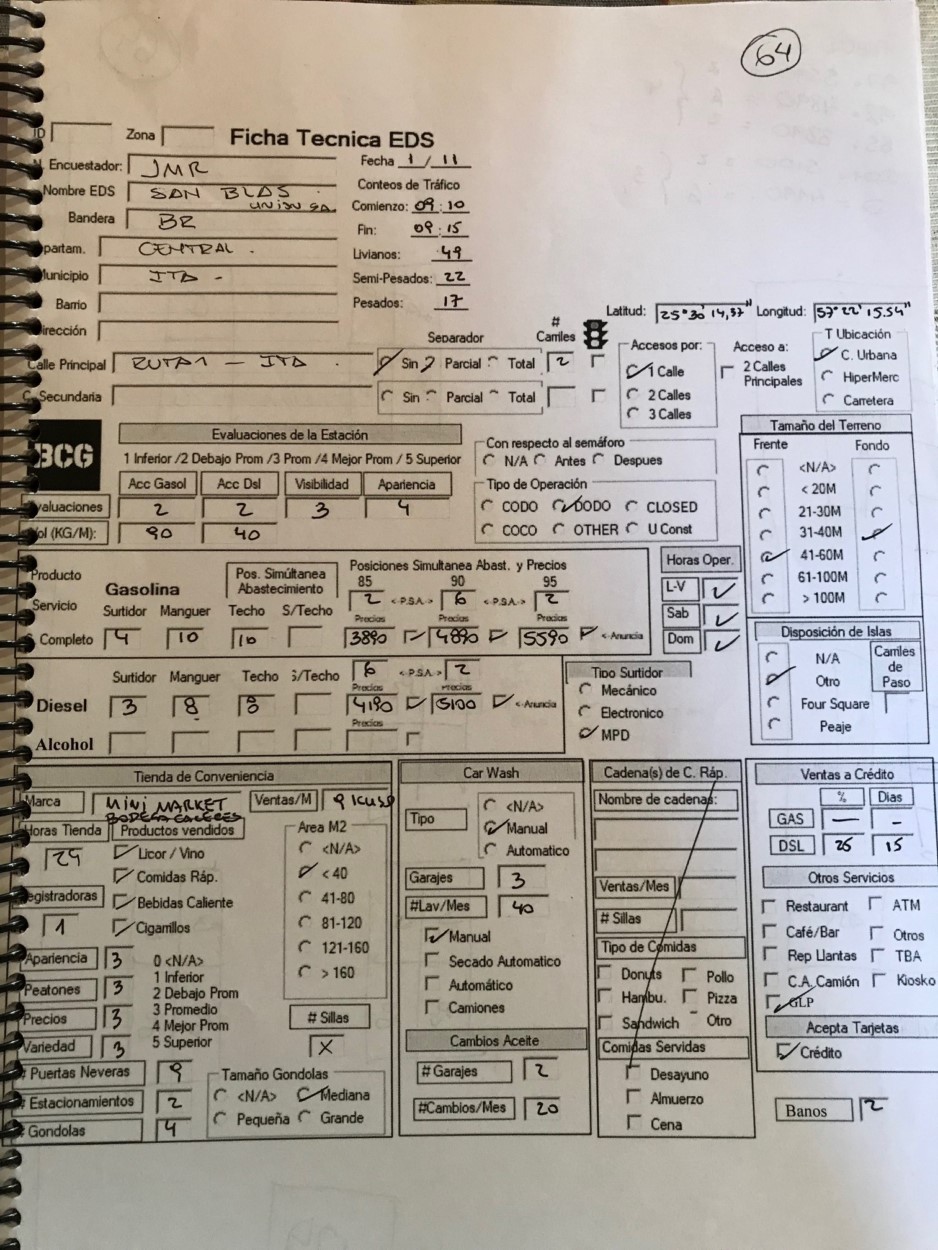 64
ID Zona Ficha Tecnica EDS
Encuestador: JMR Fecha 1 / 11
Nombre EDS SAN BLAS Conteos de Tráfico
UNION SA Comienzo: 09:10
Bandera BR Fin: 09:15
partam. CENTRAL Livianos: 49
Municipio ITA Semi-Pesados: 22
Barrio Pesados: 17
Latitud: 25°30' 14,37" Longitud: 57°22' 15.54"
irección Separador # Carriles
Accesos por: Acceso a: T Ubicación
Calle Principal RUTA 1 - ITA Sin Parcial Total 2
1 Calle 2 Calles Principales C. Urbana
HiperMerc
C. Secundaria Sin Parcial Total
2 Calles Carretera
3 Calles
BCG
Evaluaciones de la Estación
1 Inferior /2 Debajo Prom /3 Prom /4 Mejor Prom / 5 Superior
Acc Gasol Acc Dsl Visibilidad Apariencia
valuaciones 2 2 3 4
Vol (KG/M): 90 40
Con respecto al semáforo
N/A Antes Despues
Tipo de Operación
CODO DODO CLOSED
COCO OTHER U Const
Tamaño del Terreno
Frente Fondo
<N/A>
< 20M
21-30M
31-40M
41-60M
61-100M
> 100M
Producto Gasolina Pos. Simúltanea Abastecimiento
Posiciones Simultanea Abast. y Precios
85 90 95
Servicio 2 <-P.S.A-> 6 <-P.S.A-> 2
Surtidor Manguer Techo S/Techo Precios Precios Precios
Completo 4 10 10 3890 4890 5590 <-Anuncia
Horas Oper.
L-V
Sab
Dom
Surtidor Manguer Techo S/Techo 6 <-P.S.A-> 2
Precios Precios
Diesel 3 8 8 4190 5100 <-Anuncia
Precios
Alcohol
Tipo Surtidor
Mecánico
Electronico
MPD
Disposición de Islas
N/A Carriles de Paso
Otro
Four Square
Peaje
Tienda de Conveniencia
Marca MINI MARKET Ventas/M
Horas Tienda Productos vendidos
24
Licor / Vino
Comidas Ráp.
Bebidas Caliente
Cigarrillos
egistradoras
1
Area M2
<N/A>
< 40
41-80
81-120
121-160
> 160
Apariencia 3
Peatones 3
Precios 3
Variedad 3
0 <N/A>
1 Inferior
2 Debajo Prom
3 Promedio
4 Mejor Prom
5 Superior
# Sillas
X
# Puertas Neveras 9
# Estacionamientos 2
# Gondolas 4
Tamaño Gondolas
<N/A> Mediana
Pequeña Grande
Car Wash
Tipo
<N/A>
Manual
Automatico
Garajes 3
#Lav/Mes 40
Manual
Secado Automatico
Automático
Camiones
Cambios Aceite
# Garajes 2
#Cambios/Mes 20
Cadena(s) de C. Ráp.
Nombre de cadenas:
Ventas/Mes
# Sillas
Tipo de Comidas
Donuts Pollo
Hambu. Pizza
Sandwich Otro
Comidas Servidas
Desayuno
Almuerzo
Cena
Ventas a Crédito
% Dias
GAS — –
DSL 25 15
Otros Servicios
Restaurant ATM
Café/Bar Otros
Rep Llantas TBA
C.A.Camión Kiosko
GLP
Acepta Tarjetas
Crédito
Banos 2